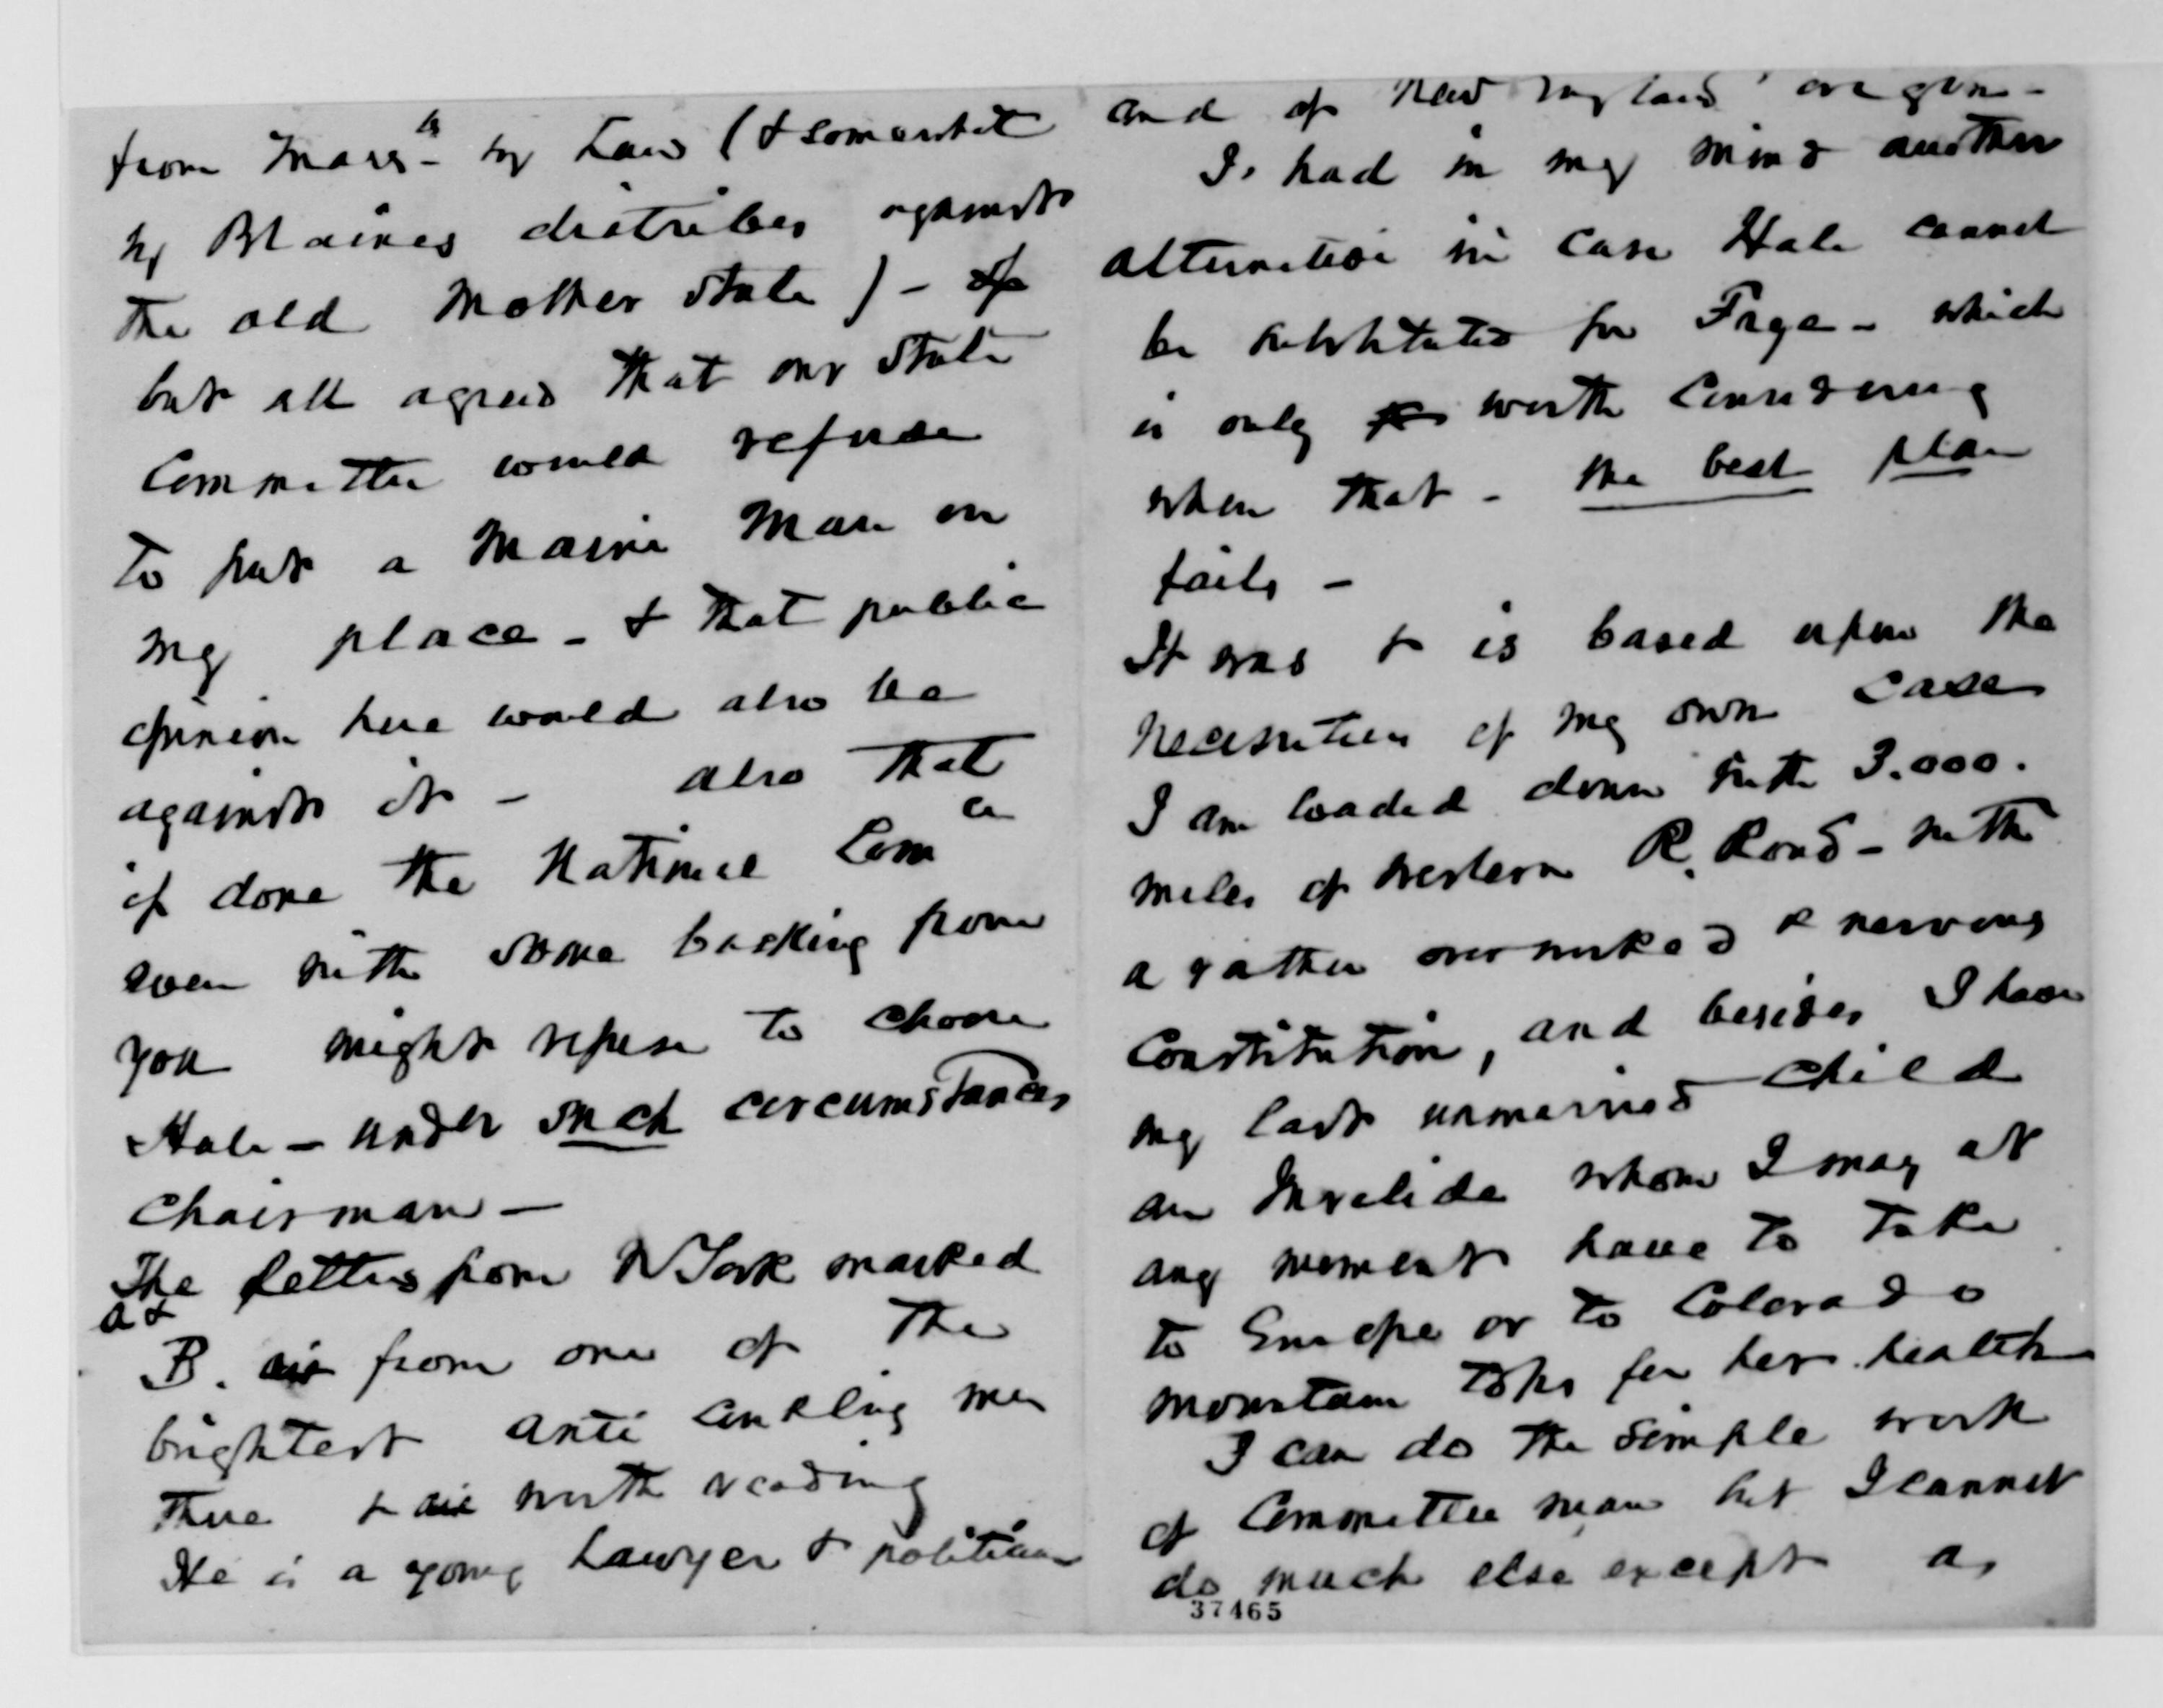 from Mass ts by Law (& somewhat
by Blaines diatribes against
the old Mother State ) -
but all agreed that our State
Committee would refuse
to put a Maine Man in
my place - & that public
opinion here would also be
against it - also that
if done the National Com ee
even with some backing from
you might refuse to choose
Hale - under such circumstances
Chairman -
The letters from N York marked
a &
B. are from one of the
brightest anti Conkling men
there & are worth reading
He is a young Lawyer & politician
and of New England origin -
I had in my mind another
alternative in case Hale cannot
be substituted for Frye - which
is only worth considering
when that - the best plan
fails -
It was & is based upon the
necessities of my own case
I am loaded down with 3.000.
miles of western R. Road - with
a rather overworked & nervous
Constitution, and besides I have
my last unmarried child
an Invalide whom I may at
any moment have to take
to Europe or to Colorado
mountain tops for her health
I can do the simple work
of Committee man but I cannot
do much else except as
37465